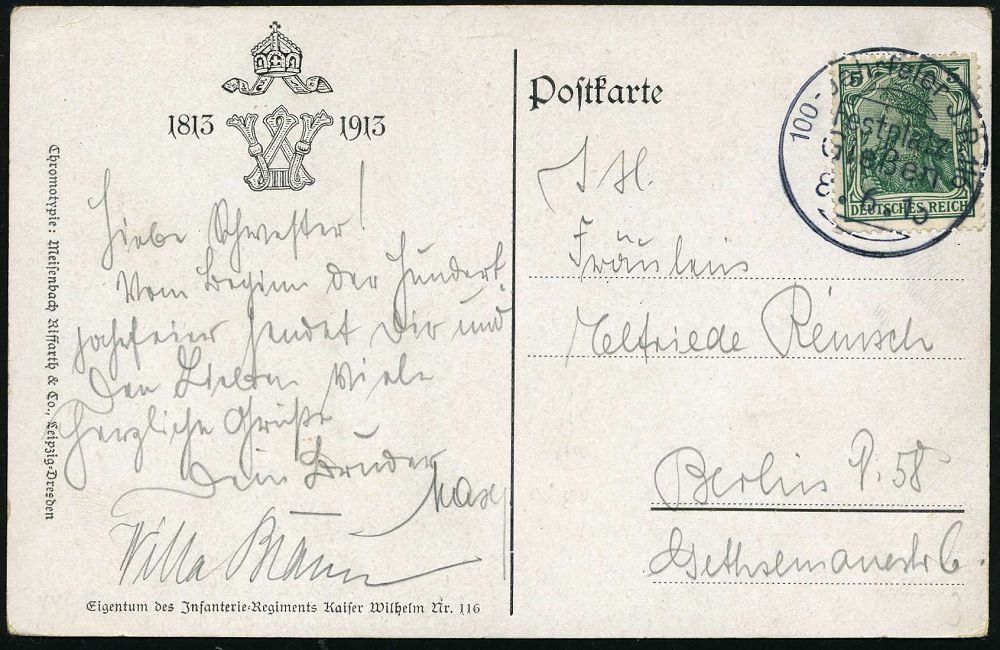 1813 1913
Liebe Schwester!
Vom Beginn der Hundert
jahrfeier sendet Dir und
Den Lieben Viele
herzliche Grüße
Dein Bruder
Max
Willa Braun
Eigentum des Infanterie-Regiments Kaiser Wilhelm Nr. 116
Chromotypie: Meisenbach Riffarth & Co., Leipzig-Dresden
Postkarte
100-Jahrfeier J.R. 116
Festplatz
Gießen
8.6.13
5
DEUTSCHES REICH
Fräulein
Elfriede Reinsch
Berlin 58
Gethsemanestr 6.